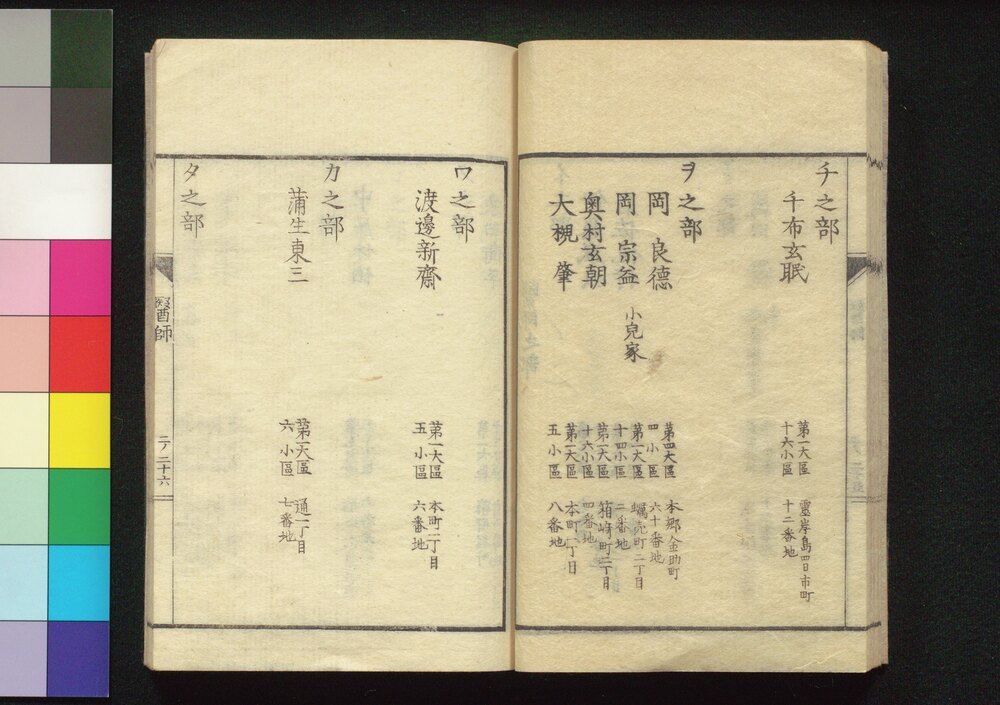 チ之部
千布玄眠
第一大區
十六小區
靈岸島四日市町
十二番地
ヲ之部
岡 良德
第四大區
四小區
本郷金助町
六十番地
岡 宗益 小兒家
第一大區
十四小區
蠣売町二丁目
二番地
奥村玄朝
第一大區
十六小區
箱崎町二丁目
四番地
大槻 肇
第一大區
五小區
本町一丁目
八番地
ワ之部
渡邊新齋
第一大區
五小區
本町二丁目
六番地
カ之部
蒲生東三
第一大區
六小區
通一丁目
七番地
タ之部
醫師
二ノ二十六